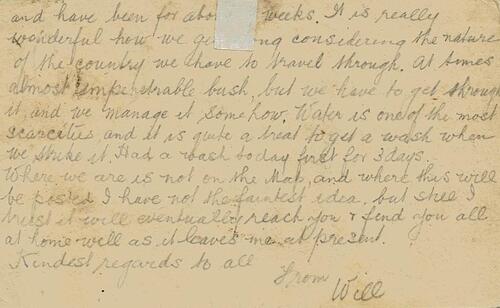 and have been for abo weeks. It is really
wonderful how we ge ng considering the nature
of the country we have to travel through. At times
almost impenetrable bush, but we have to get through
it, and we manage it somehow. Water is one of the most
scarcities and it is quite a treat to get a wash when
we strike it. Had a wash today first for 3 days.
Where we are is not on the Map, and where this will
be posted I have not the faintest idea, but still I
trust it will eventually reach you & find you all
at home well as it leaves me at present.
Kindest regards to all
From
Will